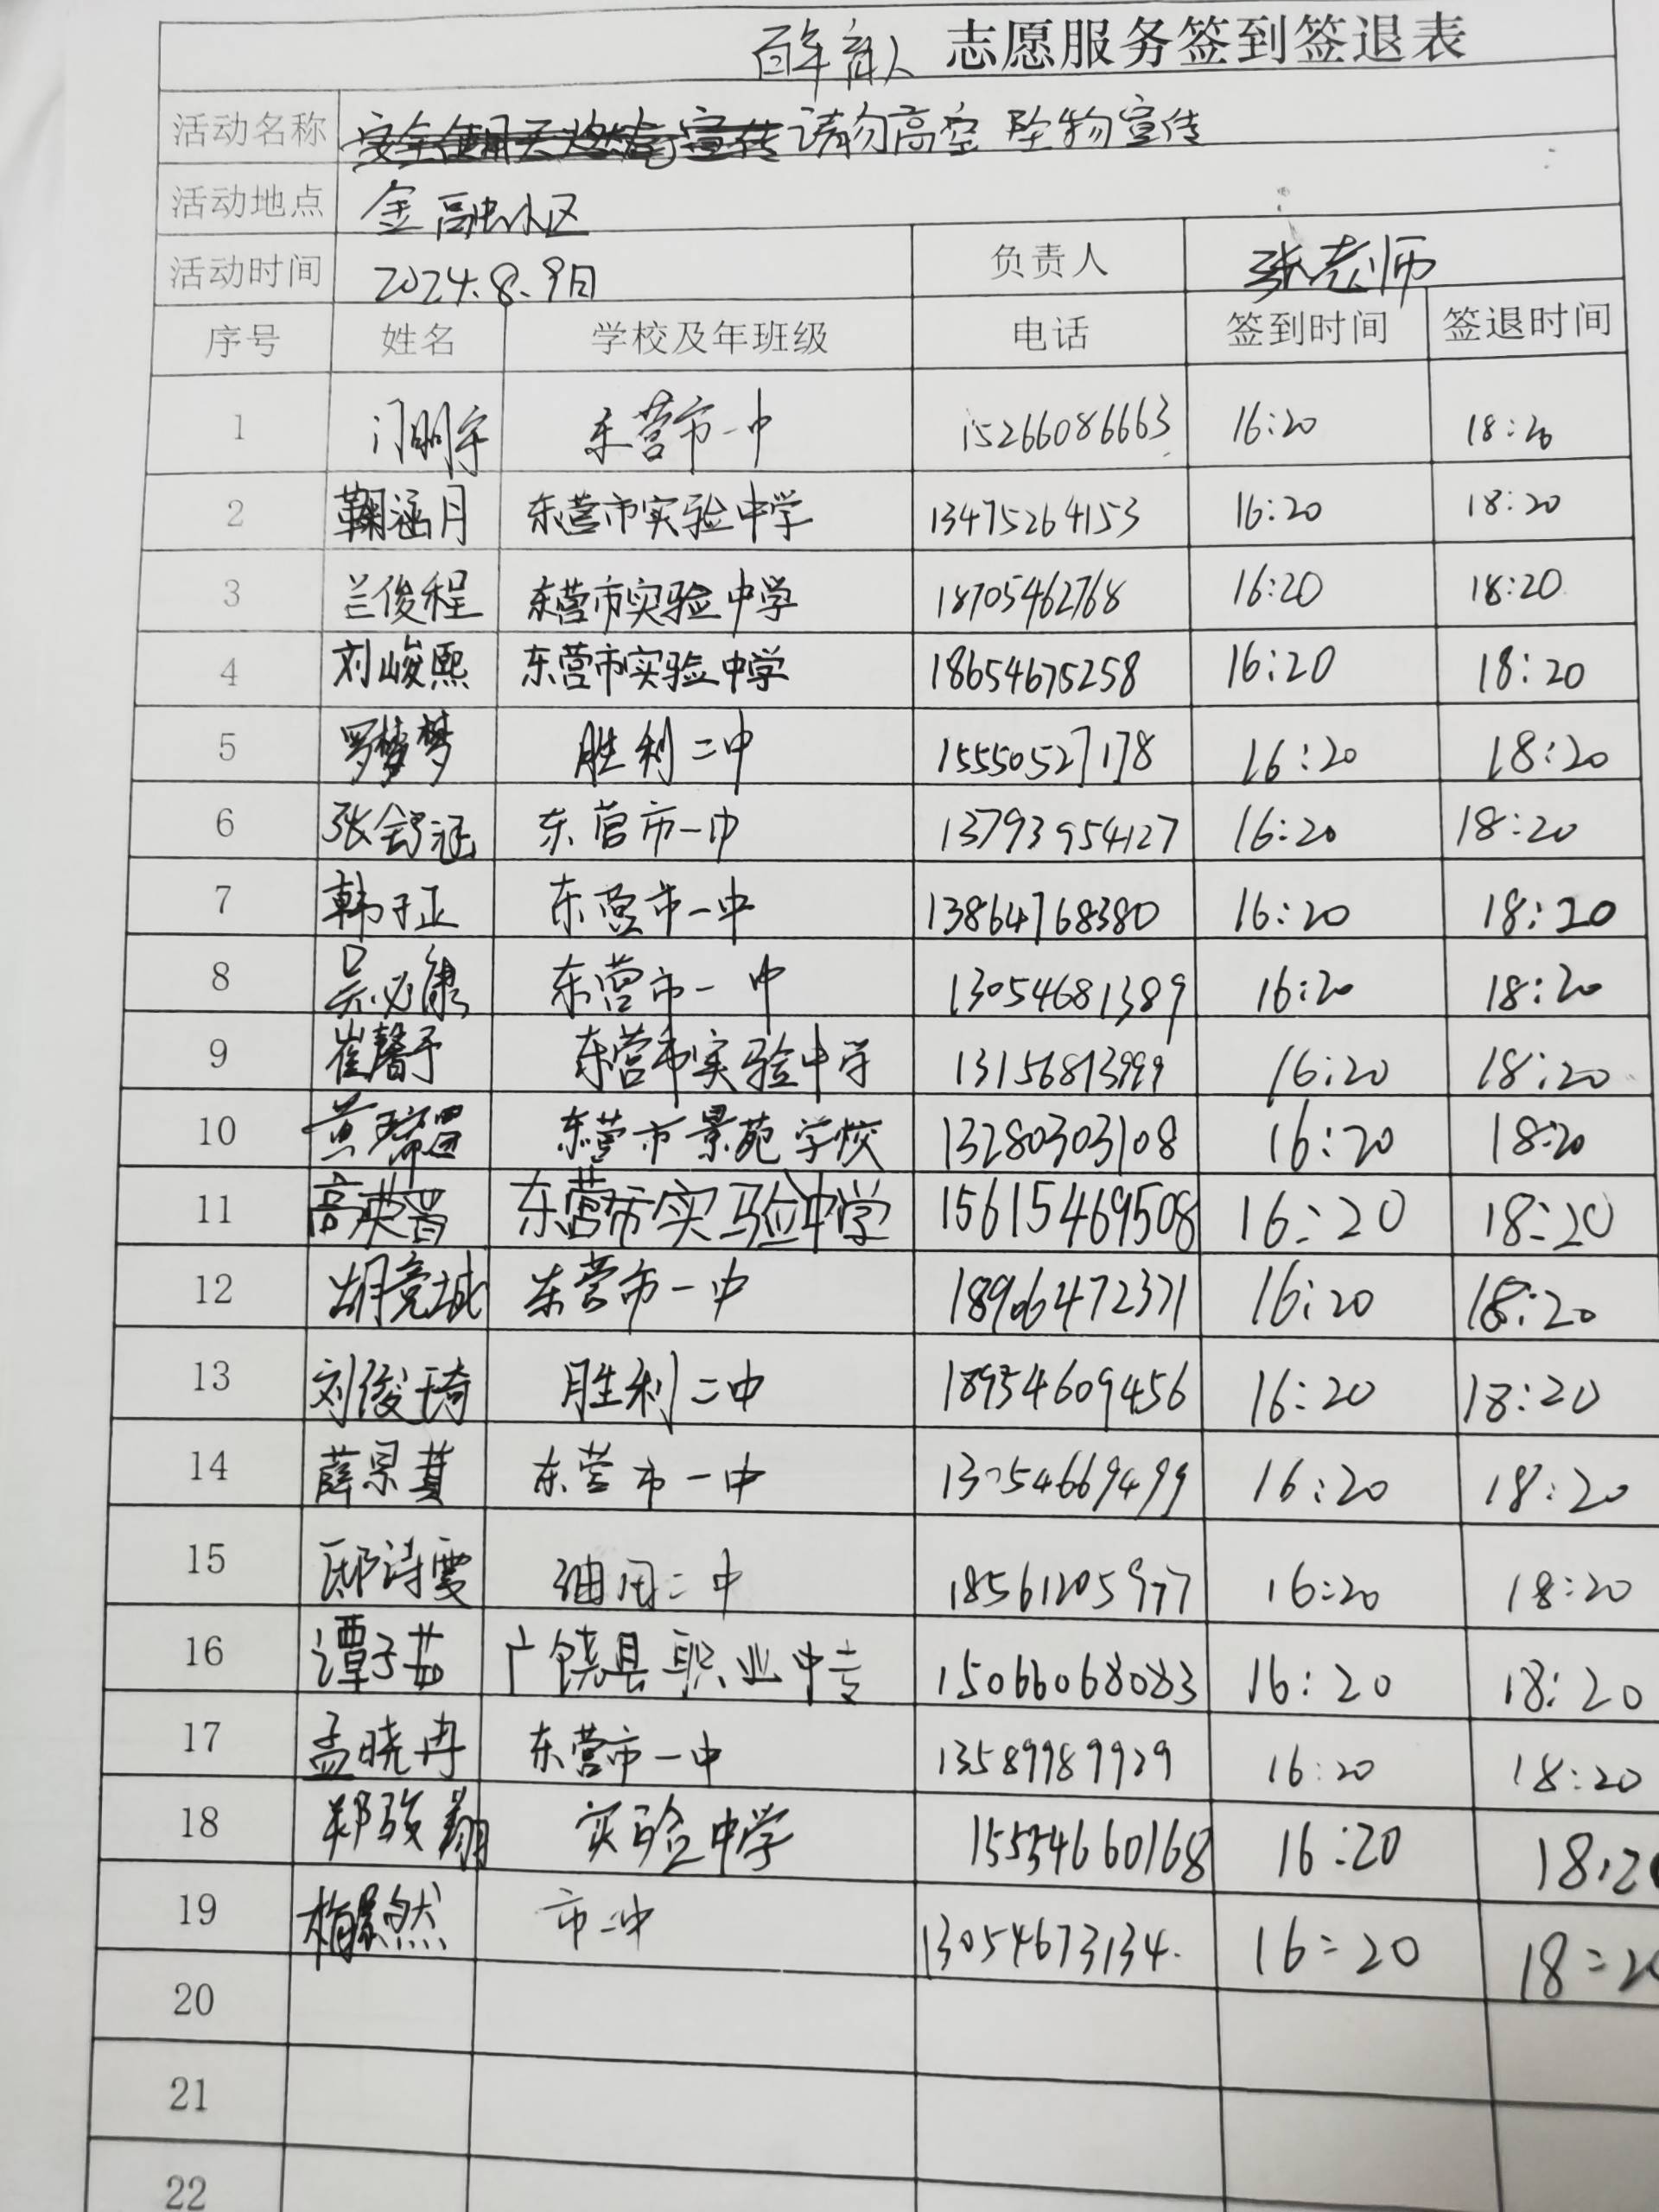 百年育人 志愿服务签到签退表
活动名称 安全使用天燃气宣传 请勿高空坠物宣传
活动地点 金融小区
活动时间 2024.8.9日 负责人 张老师
序号 姓名 学校及年班级 电话 签到时间 签退时间
1 门明宇 东营市一中 15266086663 16:20 18:20
2 鞠涵月 东营市实验中学 13475264153 16:20 18:20
3 兰俊程 东营市实验中学 18705462768 16:20 18:20
4 刘峻熙 东营市实验中学 18654675258 16:20 18:20
5 罗梦梦 胜利二中 15550527178 16:20 18:20
6 张舒涵 东营市一中 13793954127 16:20 18:20
7 韩子正 东营市一中 13864768380 16:20 18:20
8 吴必康 东营市一中 13054681389 16:20 18:20
9 崔馨予 东营市实验中学 13156813999 16:20 18:20
10 黄瑞 东营市景苑学校 13280303108 16:20 18:20
11 高英晋 东营市实验中学 15615469508 16:20 18:20
12 胡竞城 东营市一中 18906472371 16:20 18:20
13 刘俊琦 胜利二中 18954609456 16:20 18:20
14 薛景 东营市一中 13054669499 16:20 18:20
15 邸诗雯 油田二中 18561205977 16:20 18:20
16 谭子茹 广饶县职业中专 15066068083 16:20 18:20
17 孟晓冉 东营市一中 13589989929 16:20 18:20
18 郑骏翔 实验中学 15554660168 16:20 18:20
19 梅景然 市一中 13054673134. 16:20 18:20
20
21
22